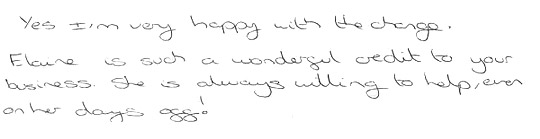 Yes I'm very happy with the change.
Elaine is such a wonderful credit to your
business. She is always willing to help, even
on her days off!